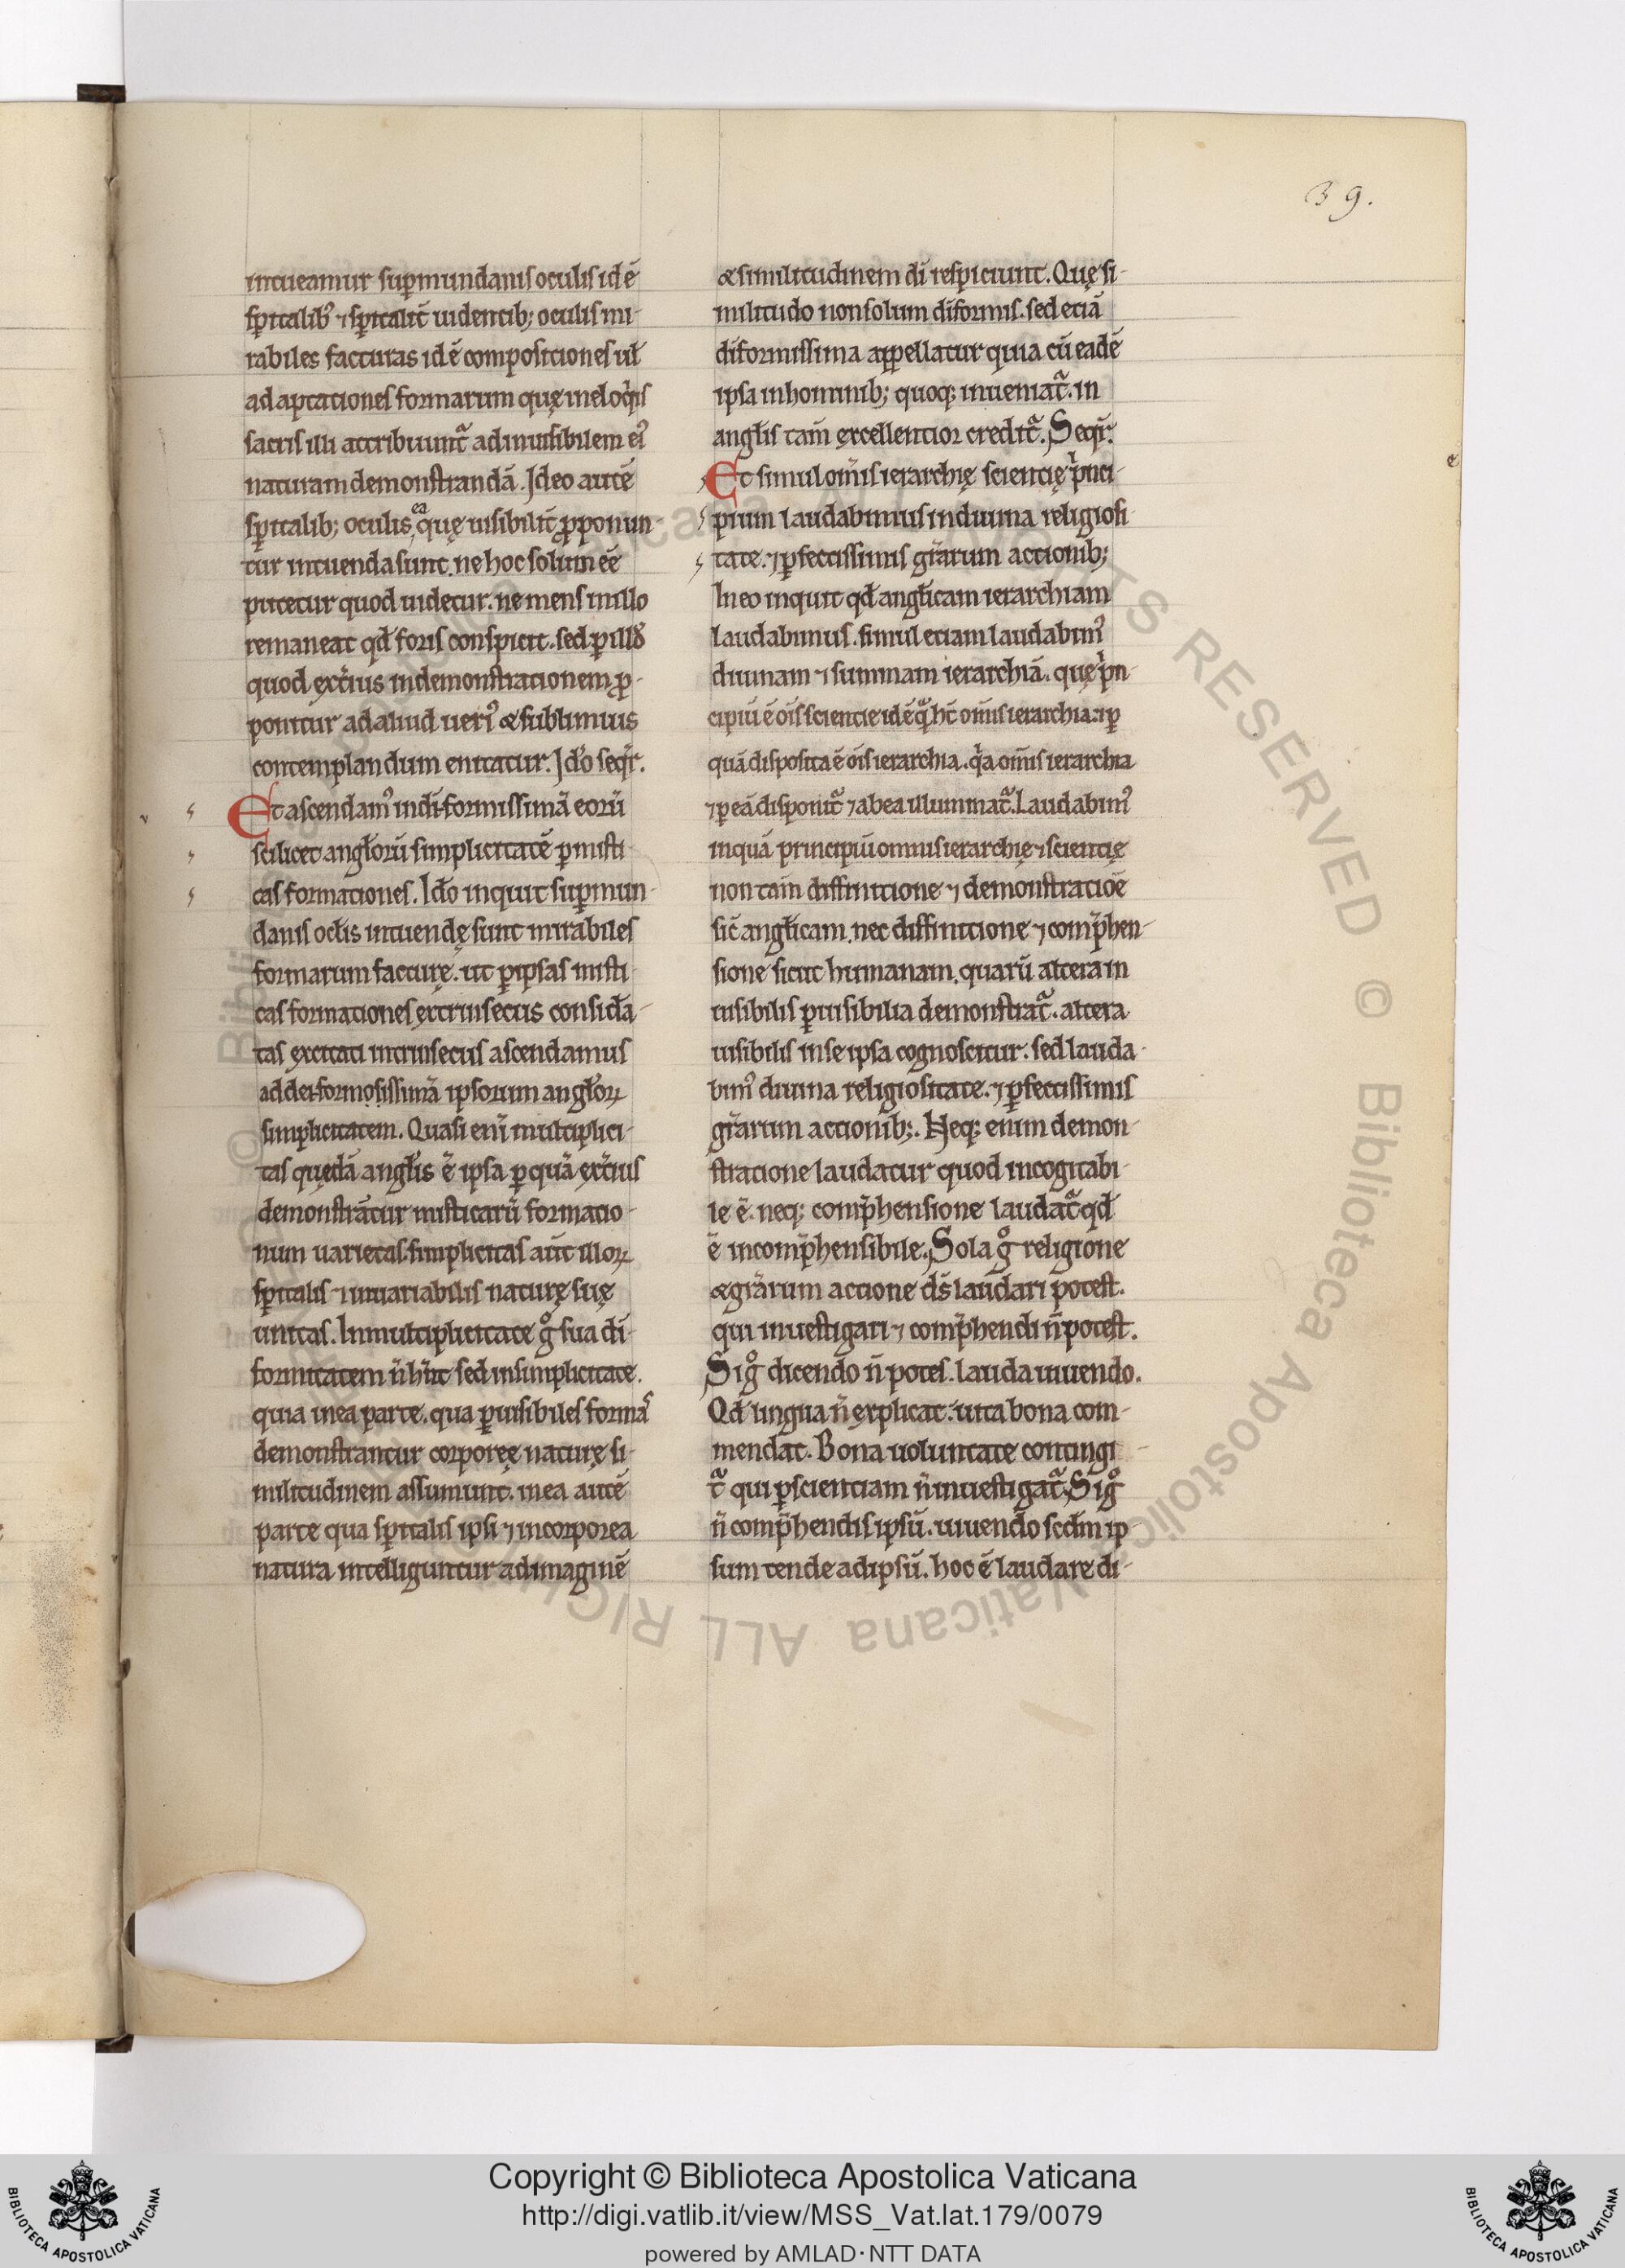 39.
intueamur sup̱mundanis oculis id ē
sp̱italib᷒ ⁊ sp̱italit̄ uidentib; oculis mi-
rabiles facturas id ē compositiones ul̄
adaptationes formarum quę in eloqͥis
sacris illi attribuunt᷑ ad inuisibilem ei᷒
naturam demonstrandā. Ideo autē
sp̱italib; oculis ea quę uisibilit̄ ꝓponun-
tur intuenda sunt. ne hoc solum eē
putetur quod uidetur. ne mens in illo
remaneat qđ foris conspicit. sed ꝑ illđ
quod ext̄ius in demonstrationem ꝓ-
ponitur ad aliud ueri᷒ & sublimius
contemplandum enitatur. Iđo seqͥr.
Et ascendam᷒ in di-formissimā eorū
scilicet angl̄orū simplicitatē ꝑ misti-
cas formationes. Iđo inquit sup̱mun-
danis ocl̄is intuendę sunt mirabiles
formarum facturę. ut ꝑ ipsas misti-
cas formationes extrinsecus consiđa-
tas excitati intrinsecus ascendamus
ad dei-formosissimā ipsorum angl̄oꝝ
simplicitatem. Quasi eni̅ multiplici-
tas quędā angl̄is ē ipsa ꝑ quā ext̄ius
demonstrātur misticarū formatio-
num uarietas. simplicitas aut̄ illoꝝ
sp̱italis ⁊ inuariabilis naturę suę
unitas. In multiplicitate gͦ sua di-
formitatem n̄ hn̄t sed in simplicitate.
quia in ea parte. qua ꝑ uisibiles formas
demonstrantur corporeę naturę si-
militudinem assumunt. in ea autē
parte qua sp̱italis ipsi ⁊ incorporea
natura intelliguntur ad imaginē
& similitudinem di̅ respiciunt. Quę si-
militudo non solum diformis. sed etiā
diformissima appellatur quia cū eadē
ipsa in hominib; quoq; inueniat᷑. in
angl̄is tam̄ excellentior credit᷑. Seqͥr.
Et simul om̄is ierarchię scientię pͥnci-
pium laudabimus in diuina religiosi-
tate. ⁊ ꝑfectissimis gr̄arum actionib;
In eo inquit qđ angl̄icam ierarchiam
laudabimus. simul etiam laudabim᷒
diuinam ⁊ summam ierarchiā. quę pͥn-
cipiū ē oīs scientie id ē qͣ hc̄ om̄is ierarchia. ⁊ ꝑ
quā disposita ē oīs ierarchia. qͥa om̄is ierarchia
⁊ ꝑ eā disponit᷑ ⁊ ab ea illuminat᷑. Laudabim᷒
inquā principiū omnis ierarchię ⁊ scientię
non tam̄ diffinitione ⁊ demonstratiōe
sic̄ angl̄icam. nec diffinitione ⁊ comp̄hen-
sione sicut humanam. quarū altera in
uisibilis ꝑ uisibilia demonstrat᷑. altera
uisibilis in se ipsa cognoscitur. sed lauda-
bim᷒ diuina religiositate. ⁊ ꝑfectissimis
gr̄arum actionib;. Neq; enim demon-
stratione laudatur quod incogitabi-
le ē. neq; comp̄hensione laudat᷑ qđ
ē incomp̄hensibile. Sola gͦ religione
& gr̄arum actione ds̄ laudari potest.
qui inuestigari ⁊ comp̄hendi n̄ potest.
Si gͦ dicendo n̄ potes. lauda uiuendo.
Qđ lingua n̄ explicat. uita bona com-
mendat. Bona uoluntate contingi
t᷑ qui ꝑ scientiam n̄ inuestigat᷑. Si gͦ
n̄ comp̄hendis ipsū. uiuendo scđm ip-
sum tende ad ipsū. hoc ē laudare di-
Copyright © Biblioteca Apostolica Vaticana
http://digi.vatlib.it/view/MSS_Vat.lat.179/0079
powered by AMLAD·NTT DATA
BIBLIOTECA APOSTOLICA VATICANA
BIBLIOTECA APOSTOLICA VATICANA
© Biblioteca Apostolica Vaticana ALL RIGHTS RESERVED © Biblioteca Apostolica Vaticana ALL RIGHTS RESERVED